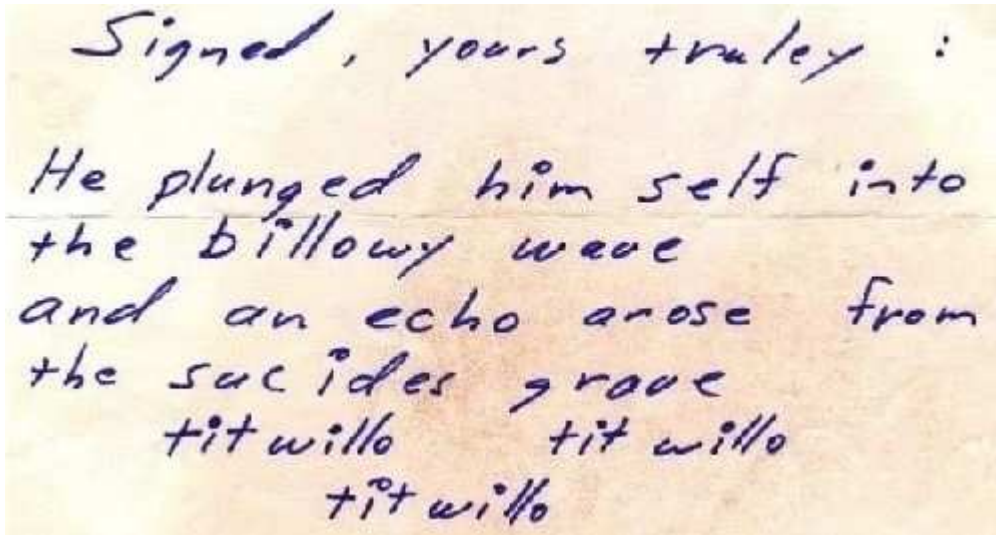 Signed, yours truley :
He plunged him self into
the billowy wave
and an echo arose from
the sucides grave
titwillo titwillo
titwillo